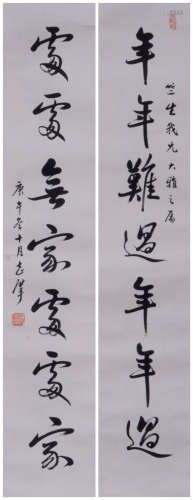 竺生我兄大雅之属
年年難過年年過
處處無家處處家
庚午冬十月志摩